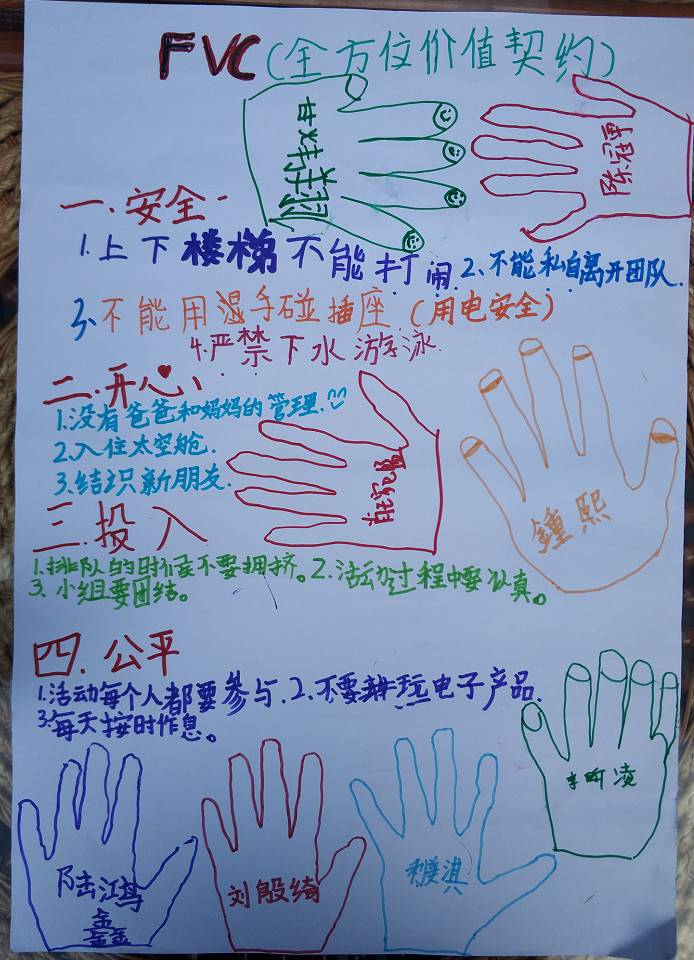 FVC(全方位价值契约)
陈冠宇
一.安全
1.上下楼梯不能打闹.2、不能私自离开团队.
3、不能用湿手碰插座.(用电安全)
4.严禁下水游泳.
二.开心、
1.没有爸爸和妈妈的管理.
2.入住太空舱.
3.结识新朋友.
鍾熙
三.投入
1.排队的时候不要拥挤。2.活动过程中要认真。
3.小组要团结。
四.公平
1.活动每个人都要参与.2.不要耕玩电子产品.
3.每天按时作息。
李昕凌
陆鸿鑫
刘殷绮